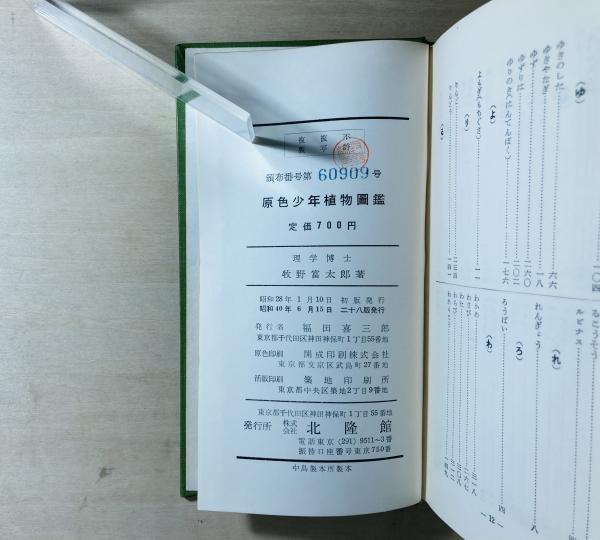 不許
複写
複製
頒布番号第 60909 号
原色少年植物圖鑑
定価700円
理学博士
牧野富太郎著
昭和28年1月10日 初版発行
昭和40年6月15日 二十八版発行
発行者 福田喜三郎
東京都千代田区神田神保町1丁目55番地
原色印刷 開成印刷株式会社
東京都文京区武島町27番地
活版印刷 築地印刷所
東京都中央区築地2丁目9番地
東京都千代田区神田神保町1丁目55番地
発行所 株式会社 北隆館
電話東京(291)9511〜3番
振替口座番号東京750番
中島製本所製本
一〇四
(ゆ)
ゆきのした……六六
ゆきやなぎ
ゆず……一八
ゆずりは……二〇二
ゆりのき(はんてんぼく)……一七六
(よ)
よもぎ(もちぐさ)……一一
(り)
(る)
るこうそう
ルピナス
(れ)
れんぎょう……八
(ろ)
ろうばい……四
(わ)
わかめ……三一八
わさび……二六七
わた……三〇八
わらび……三一二
— 12 —